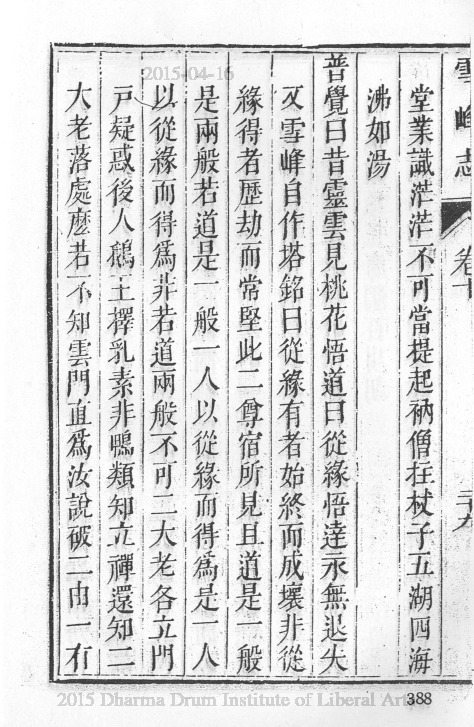 雪峰志
卷十
二十九
堂業識茫茫不可當提起衲僧拄杖子五湖四海
沸如湯
普覺曰昔靈雲見桃花悟道曰從緣悟達永無退失
又雪峰自作塔銘曰從緣有者始終而成壞非從
緣得者歷劫而常堅此二尊宿所見且道是一般
是兩般若道是一般一人以從緣而得為是一人
以從緣而得爲非若道兩般不可二大老各立門
戸疑惑後人鵝王擇乳素非鴨類知立禪還知二
大老落處麼若不知雲門直爲汝說破二由一有
2015-04-16
2015 Dharma Drum Institute of Liberal Arts
388